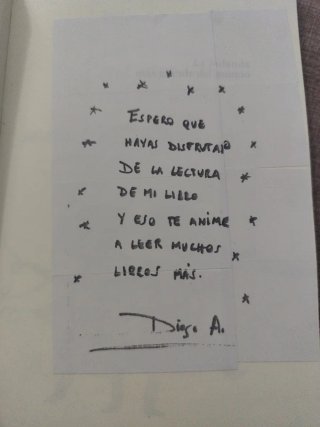 ESPERO QUE
HAYAS DISFRUTADO
DE LA LECTURA
DE MI LIBRO
Y ESO TE ANIME
A LEER MUCHOS
LIBROS MÁS.
Diego A.